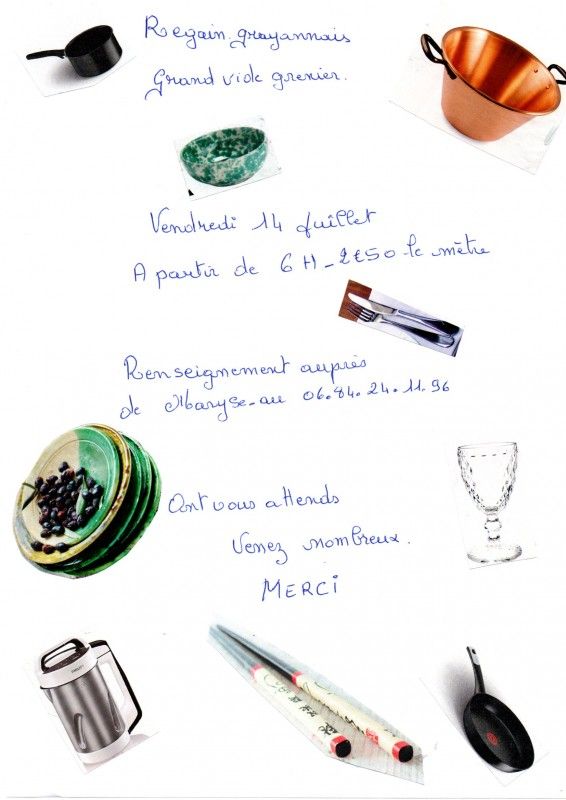 Regain grayannais
Grand vide grenier.
Vendredi 14 Juillet
A partir de 6H_2€50 le mètre
Renseignement auprès
de Maryse_au 06.84.24.11.96
Ont vous attends
Venez nombreux.
MERCI